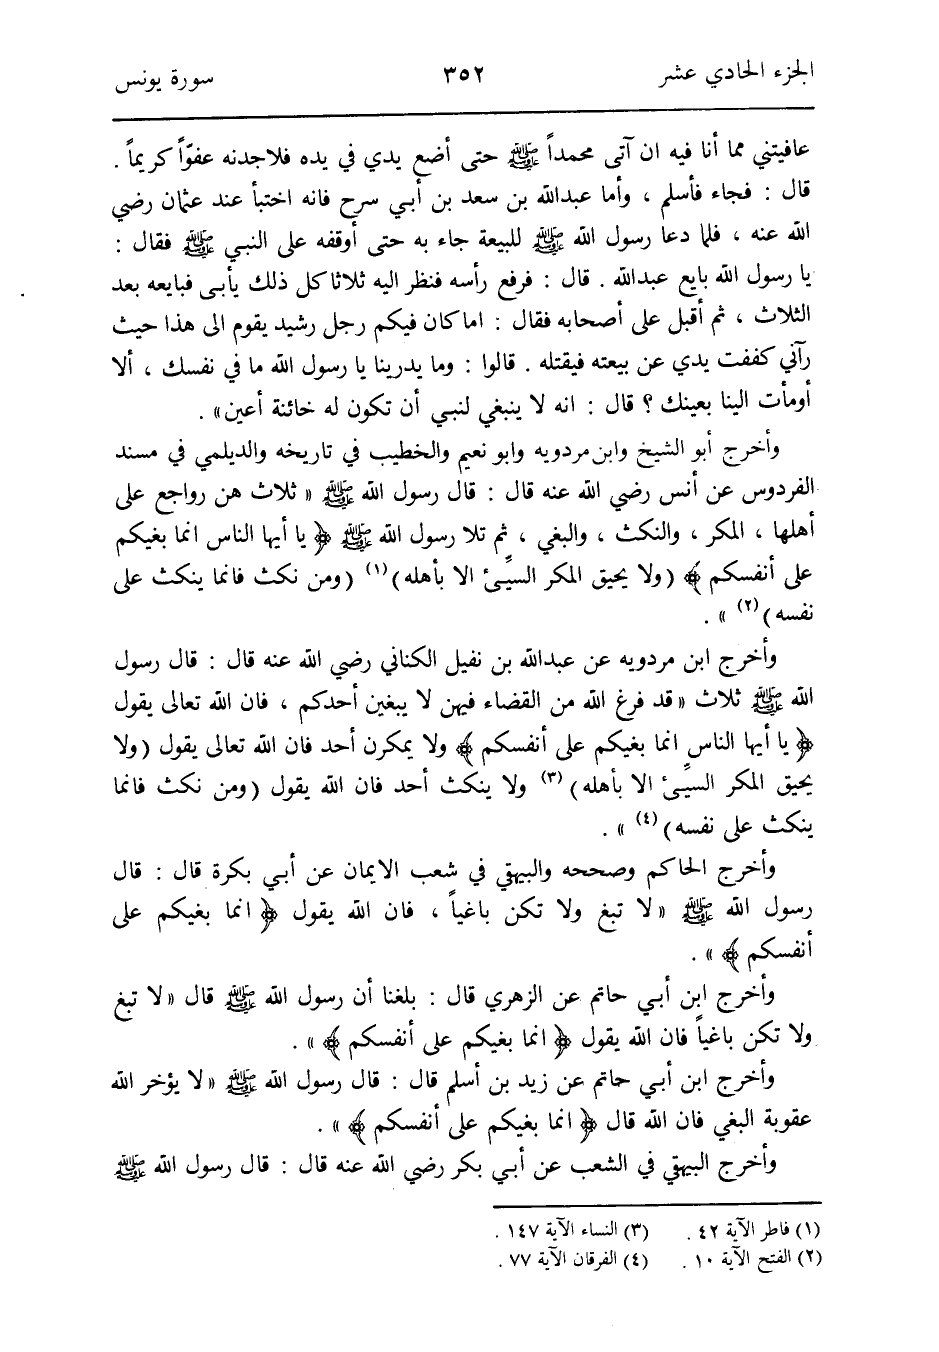 الجزء الحادي عشر ٣٥٢ سورة يونس
عافيتني مما أنا فيه ان آتى محمداً ﷺ حتى أضع يدي في يده فلاجدنه عفوّاً كريماً .
قال : فجاء فأسلم ، وأما عبدالله بن سعد بن أبي سرح فانه اختبأ عند عثمان رضي
الله عنه ، فلما دعا رسول الله ﷺ للبيعة جاء به حتى أوقفه على النبي ﷺ فقال :
يا رسول الله بايع عبدالله . قال : فرفع رأسه فنظر اليه ثلاثا كل ذلك يأبى فبايعه بعد
الثلاث ، ثم أقبل على أصحابه فقال : اما كان فيكم رجل رشيد يقوم الى هذا حيث
رآني كففت يدي عن بيعته فيقتله . قالوا : وما يدرينا يا رسول الله ما في نفسك ، ألا
أومأت الينا بعينك ؟ قال : انه لا ينبغي لنبي أن تكون له خائنة أعين» .
وأخرج أبو الشيخ وابن مردويه وابو نعيم والخطيب في تاريخه والديلمي في مسند
الفردوس عن أنس رضي الله عنه قال : قال رسول الله ﷺ « ثلاث هن رواجع على
أهلها ، المكر ، والنكث ، والبغي ، ثم تلا رسول الله ﷺ ﴿ يا أيها الناس انما بغيكم
على أنفسكم ﴾ ( ولا يحيق المكر السيِّئ الا بأهله ) (١) ( ومن نكث فانما ينكث على
نفسه ) (٢) » .
وأخرج ابن مردويه عن عبدالله بن نفيل الكناني رضي الله عنه قال : قال رسول
الله ﷺ ثلاث « قد فرغ الله من القضاء فيهن لا يبغين أحدكم ، فان الله تعالى يقول
﴿ يا أيها الناس انما بغيكم على أنفسكم ﴾ ولا يمكرن أحد فان الله تعالى يقول ( ولا
يحيق المكر السيِّئ الا بأهله ) (٣) ولا ينكث أحد فان الله يقول ( ومن نكث فانما
ينكث على نفسه ) (٤) » .
وأخرج الحاكم وصححه والبيهقي في شعب الايمان عن أبي بكرة قال : قال
رسول الله ﷺ « لا تبغ ولا تكن باغياً ، فان الله يقول ﴿ انما بغيكم على
أنفسكم ﴾ » .
وأخرج ابن أبي حاتم عن الزهري قال : بلغنا أن رسول الله ﷺ قال « لا تبغ
ولا تكن باغياً فان الله يقول ﴿ انما بغيكم على أنفسكم ﴾ » .
وأخرج ابن أبي حاتم عن زيد بن أسلم قال : قال رسول الله ﷺ « لا يؤخر الله
عقوبة البغي فان الله قال ﴿ انما بغيكم على أنفسكم ﴾ » .
وأخرج البيهقي في الشعب عن أبي بكر رضي الله عنه قال : قال رسول الله ﷺ
(١) فاطر الآية ٤٢ . (٣) النساء الآية ١٤٧ .
(٢) الفتح الآية ١٠ . (٤) الفرقان الآية ٧٧ .